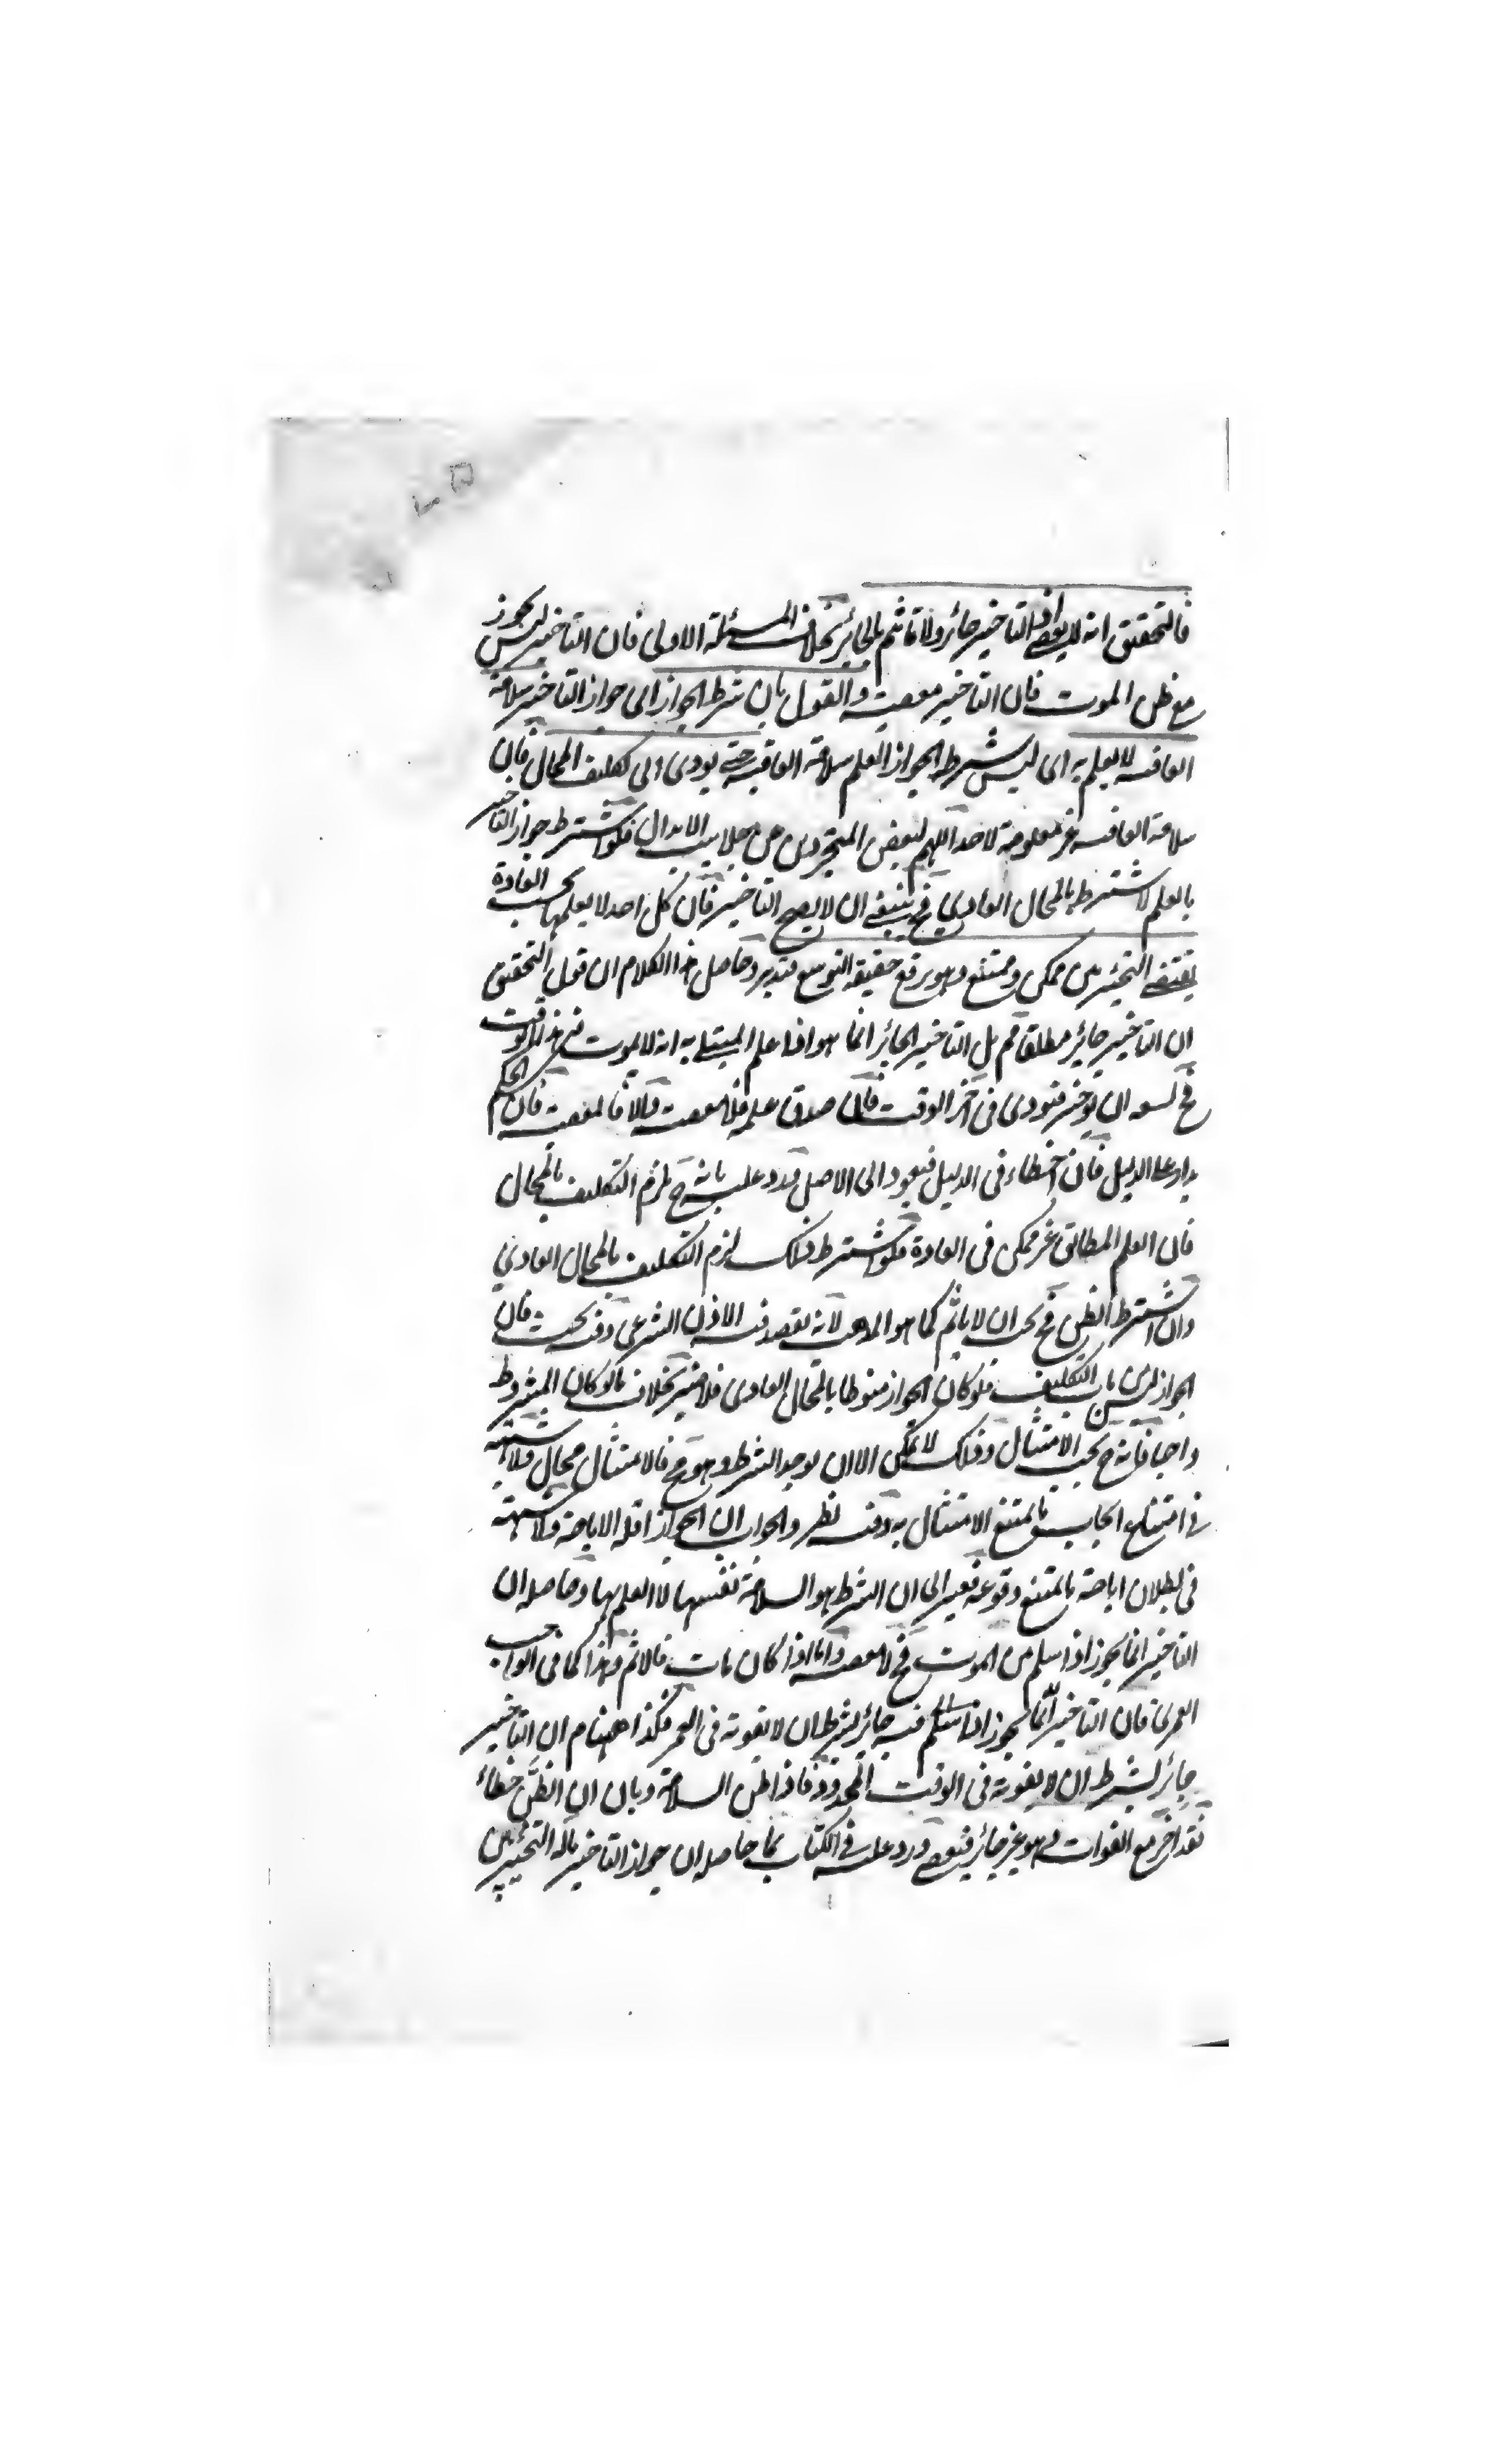 فالتحقيق انه لا يعصى اذ التاخير جائز ولا تاثم بالجائز بخلاف المسئلة الاولى فان التاخير ليس يجوز
مع ظن الموت فان التاخير معصية والقول بان شرط الجواز اى جواز التاخير سلامة
العاقبة لا العلم به اى ليس شرط الجواز العلم سلامة العاقبة حتى يودى الى تكليف المحال فان
سلامة العاقبة غير معلومة لاحد اللهم لبعض المتجردين عن جلابيب الابدان فلو اشترط جواز التاخير
بالعلم لاشترط بالمحال العادى فح ينبغى ان لا يصح التاخير فان كل احد لا يعلمها بحسب العادة
يقتضى التخيير بين ممكن وممتنع وهو يرفع حقيقة التوسع فتدبر وحاصل هذا الكلام ان قول التحقيق
ان التاخير جائز مطلقا مم بل التاخير الجائز انما هو اذا علم المبتلى به انه لا يموت فى هذا الوقت
فح يسعه ان يوخر فيودى فى آخر الوقت فان صدق علمه فلا معصية والا فالمعصية فان الحكم
يدار على الدليل فان اخطاء فى الدليل فيعود الى الاصل فيرد عليه بانه ح يلزم التكليف بالمحال
فان العلم المطابق غير ممكن فى العادة فلو اشترط ذلك لزم التكليف بالمحال العادى
وان اشترط الظن فح يجب ان لا ياثم كما هو المذهب لانه يقصد فيه الاذن الشرعى وفيه بحث فان
الجواز ليس من باب التكليف فلو كان الجواز منوطا بالمحال العادى فلا ضير بخلاف ما لو كان المشروط
واجبا فانه ح يجب الامتثال وذلك لا يمكن الا ان يوجد الشرط وهو مح فالامتثال محال ولا شبهة
فى امتناع ايجاب ما يمتنع الامتثال به وفيه نظر والجواب ان الجواز اقله الاباحة ولا شبهة
فى بطلان اباحة ما يمتنع وقوعه فيصير الى ان الشرط هو السلامة نفسها لا العلم بها وحاصله ان
التاخير انما يجوز اذا سلم من الموت فح لا معصية واما اذا كان مات فالاثم وهذا كما فى الواجب
العمرى فان التاخير انما يجوز اذا سلم فيه جائز بشرط ان لا يفوته فى العمر فكذا ههنا م ان التاخير
جائز بشرط ان لا يفوته فى الوقت المحدود فاذا ظن السلامة وبان ان الظن خطاء
فقد اخر مع الفوات وهو غير جائز فيعصى ورد عليه فى الكتاب بما حاصله ان جواز التاخير ماله التخيير بين